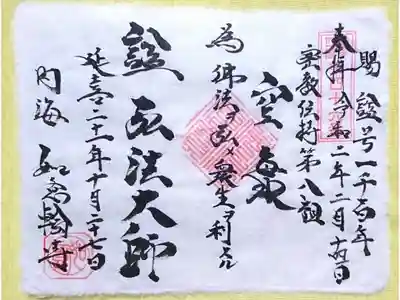 賜諡号一千百年
奉拝 令和二年二月十四日
密教伝持第八祖
空海
為佛法ヲ弘メ衆生ヲ利スル
諡 弘法大師
延喜二十一年十月二十七日
内海 如意輪寺